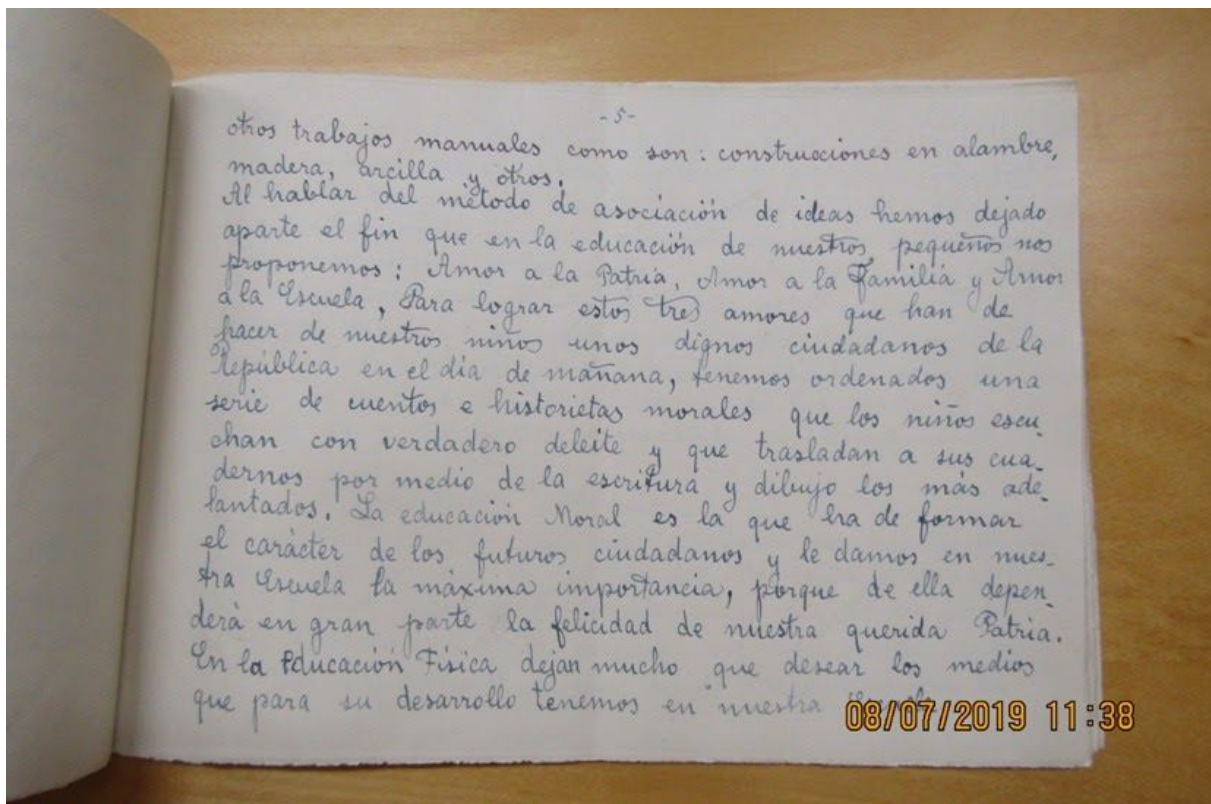 - 5 -
otros trabajos manuales como son: construcciones en alambre,
madera, arcilla y otros.
Al hablar del método de asociación de ideas hemos dejado
aparte el fin que en la educación de nuestros pequeños nos
proponemos: Amor a la Patria, Amor a la Familia y Amor
a la Escuela, Para lograr estos tres amores que han de
hacer de nuestros niños unos dignos ciudadanos de la
República en el dia de mañana, tenemos ordenados una
serie de cuentos e historietas morales que los niños escu_
chan con verdadero deleite y que trasladan a sus cua_
dernos por medio de la escritura y dibujo los más ade_
lantados. La educación Moral es la que ha de formar
el carácter de los futuros ciudadanos y le damos en nues_
tra Escuela la máxima importancia, porque de ella depen_
derá en gran parte la felicidad de nuestra querida Patria.
En la Educación Física dejan mucho que desear los medios
que para su desarrollo tenemos en nuestra
08/07/2019 11:38